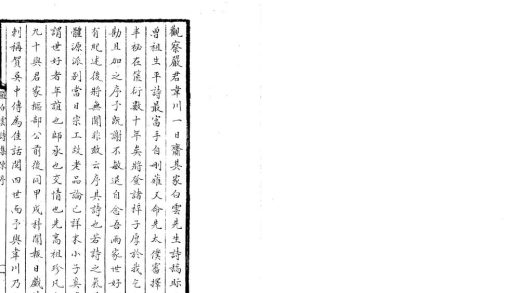 觀察嚴君韋川一日齎其家白雲先生詩稿際
曾祖生平詩最富手自刪薙又命先太僕審擇
半祕在篋衍數十年矣將發諸梓子厚於我乞
勘且加之序予既謝不敏退自念吾兩家世好
有紀述後將無聞非敢云序其詩也若詩之氣
體源派則當日宗工故老品論已詳末小子奚
謂世好者年誼也師承也交情也先高祖珍凡
九十與君家樞部公前後同甲戌科開報日戲
刺稱賀吳中傳為佳話閱四世而予與韋川乃
嚴白雲詩集 序